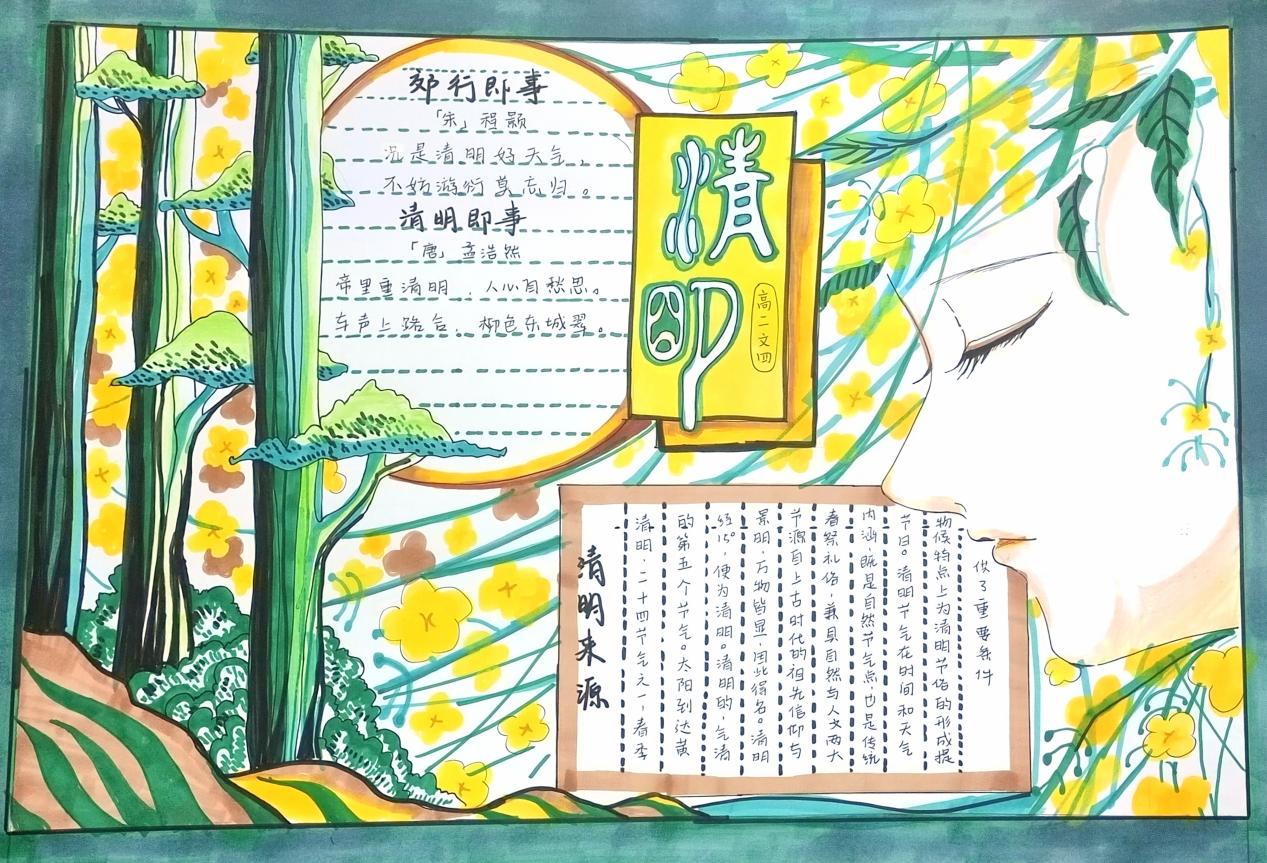 郊行即事
「宋」程颢
况是清明好天气，
不妨游衍莫忘归。
清明即事
「唐」孟浩然
帝里重清明，人心自愁思。
车声上路合，柳色东城翠。
清明
高二文四
清明来源
清明，二十四节气之一，春季
的第五个节气。太阳到达黄
经15°，便为清明。清明的，气清
景明，万物皆显，因此得名。清明
节源自上古时代的祖先信仰与
春祭礼俗，兼具自然与人文两大
内涵，既是自然节气点，也是传统
节日。清明节气在时间和天气
物候特点上为清明节俗的形成提
供了重要条件